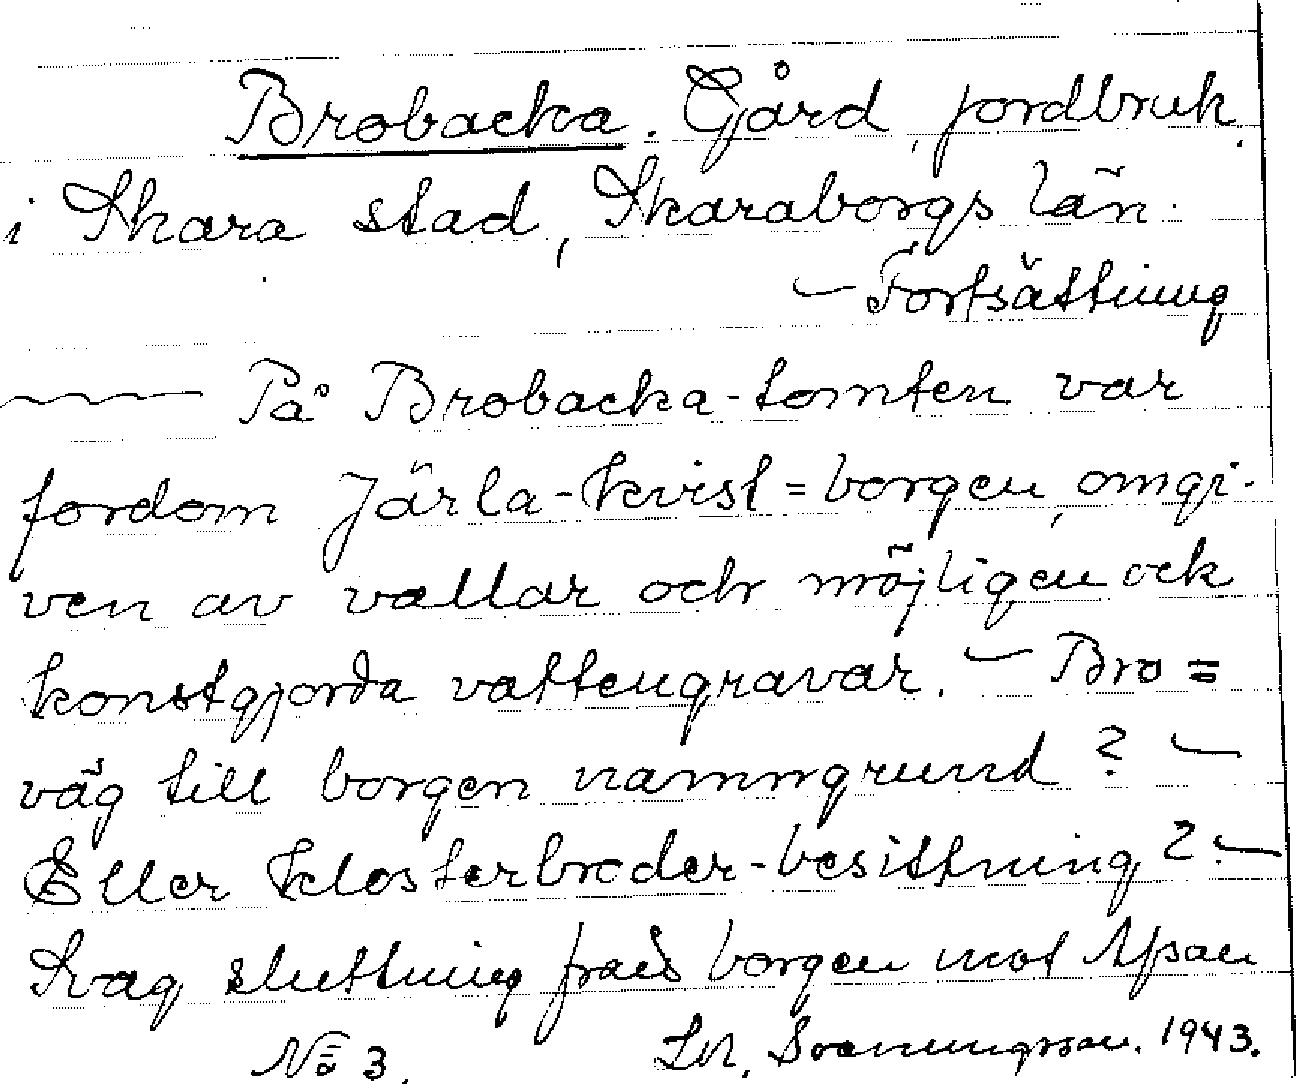 Brobacka. Gård, jordbruk,
i Skara stad, Skaraborgs län.
— Fortsättning
—— På Brobacka-tomten var
fordom Järla-Kvist=borgen, omgi-
ven av vallar och möjligen ock
konstgjorda vattengravar. — Bro=
väg till borgen namngrund? —
Eller Klosterbroder-besittning? —
Svag sluttning från borgen mot
No 3. 1943.